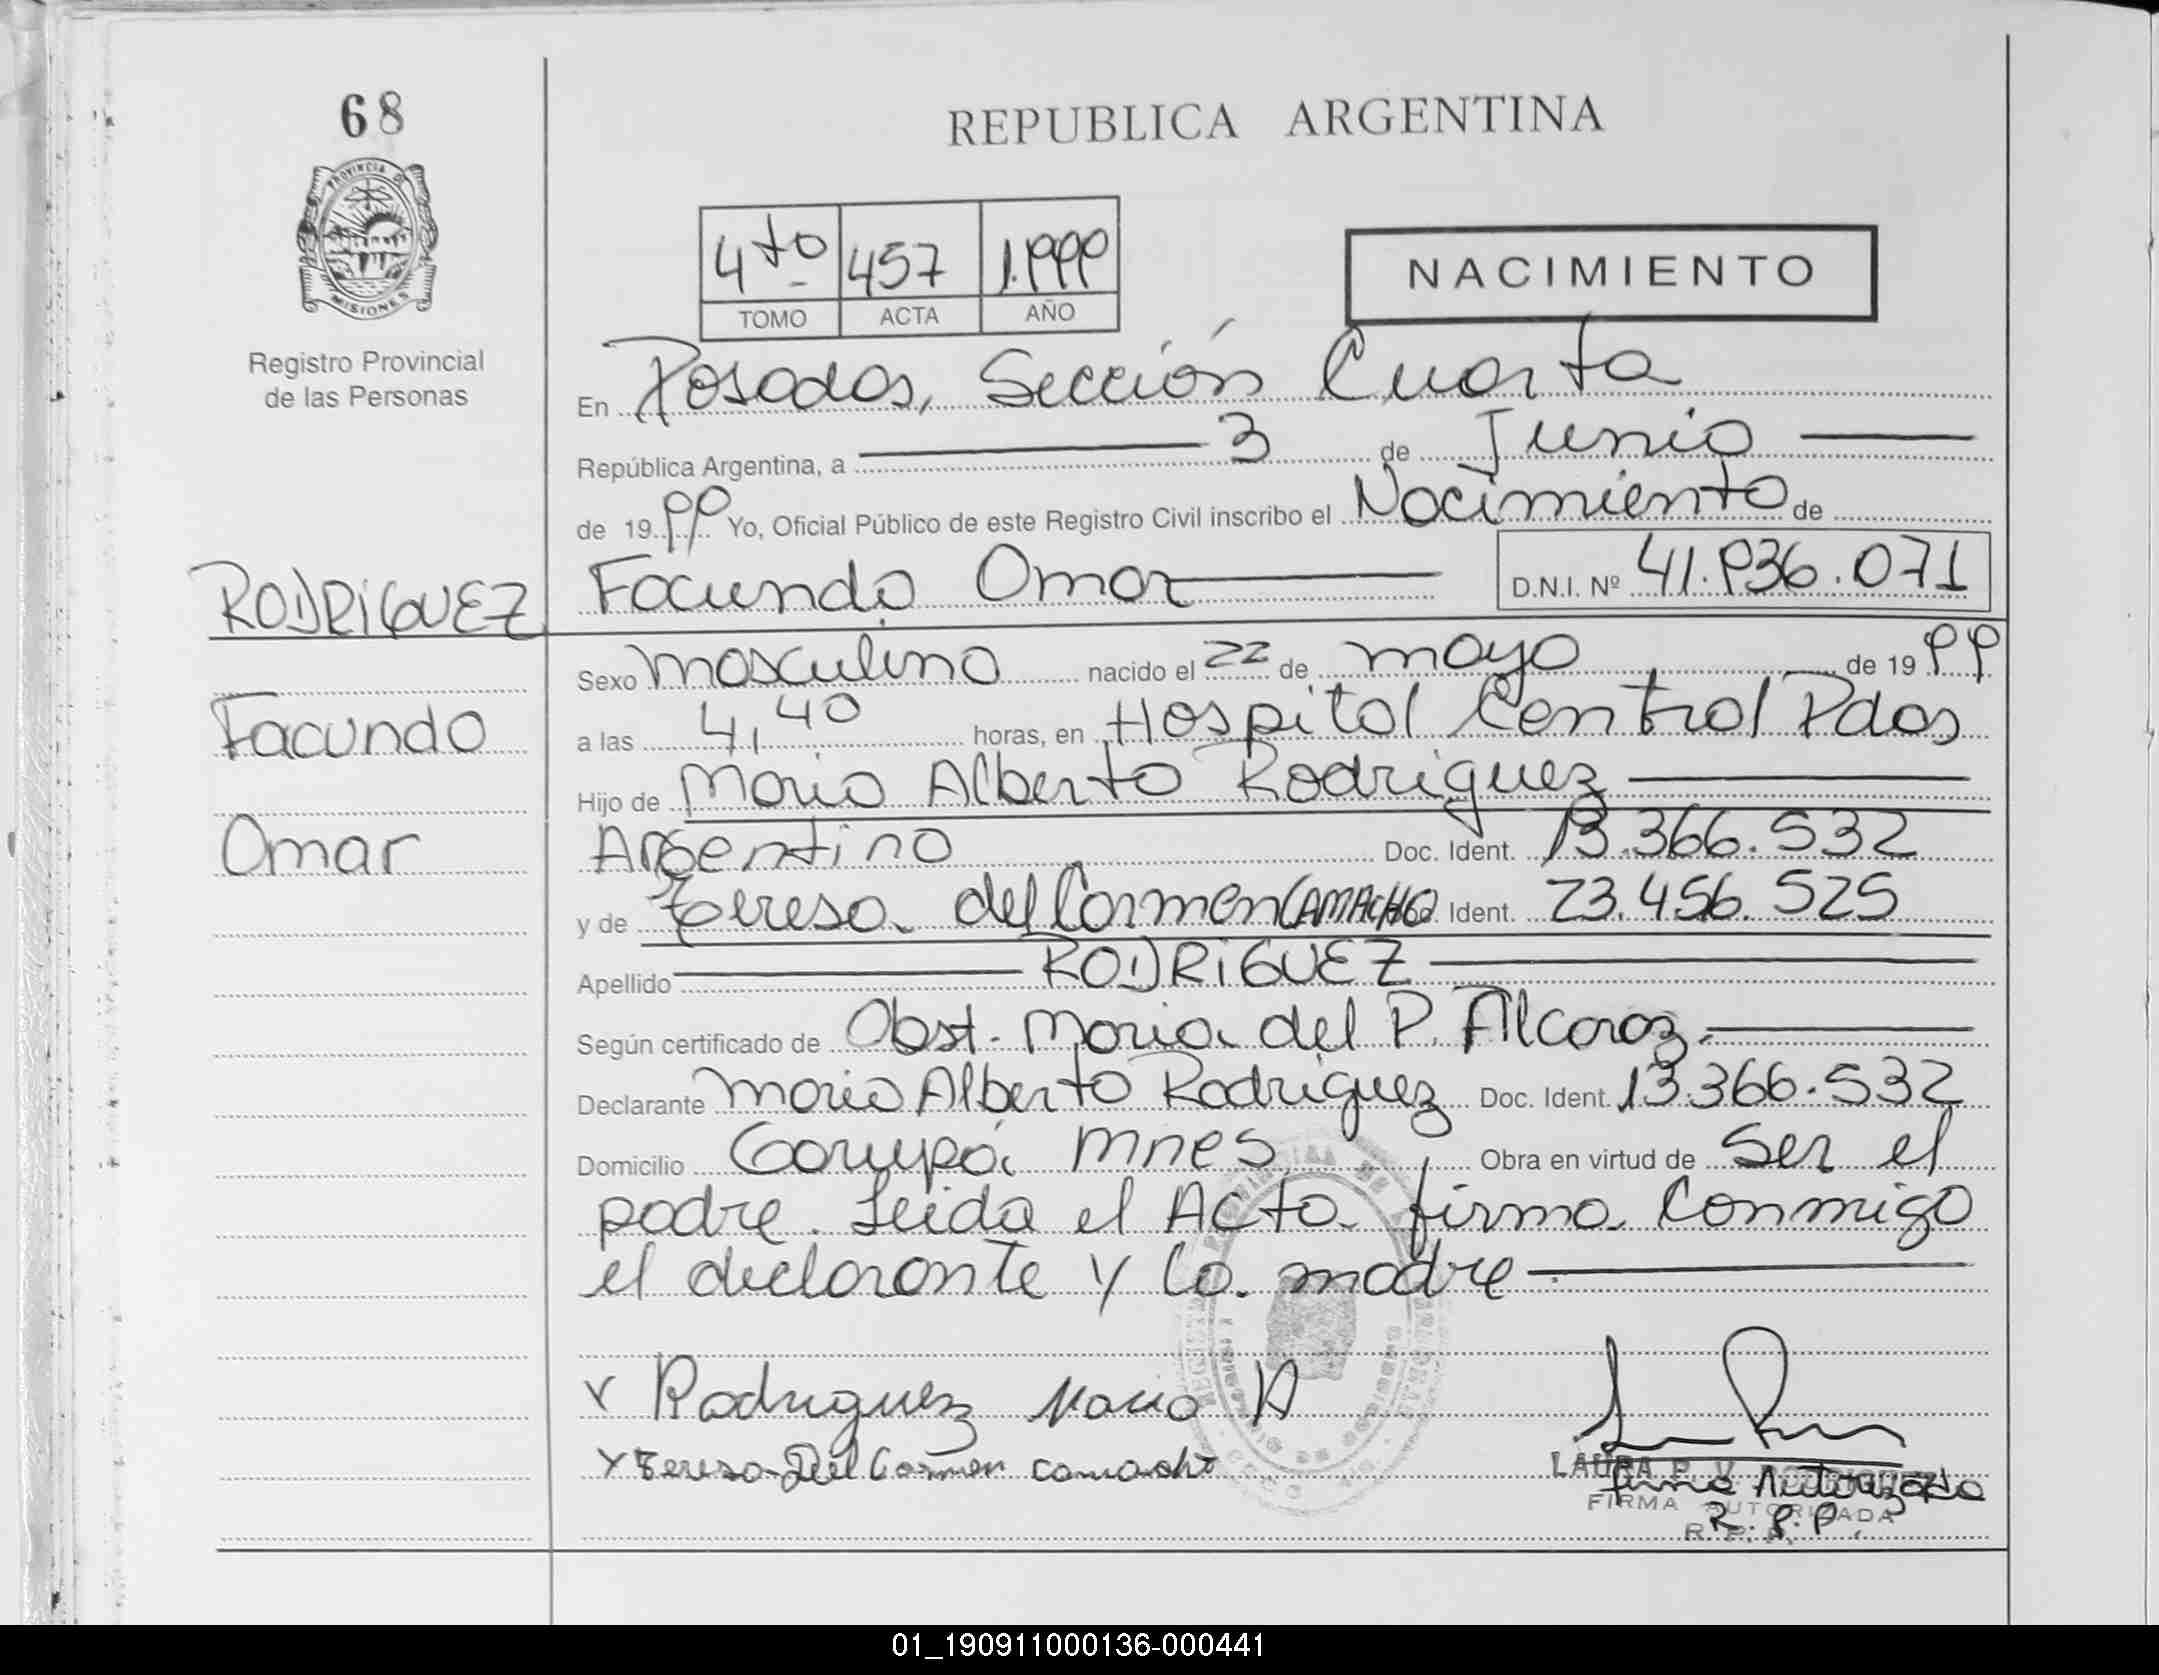 68
REPUBLICA ARGENTINA
PROVINCIA DE
MISIONES
4to 457 1.999
TOMO ACTA AÑO
NACIMIENTO
Registro Provincial
de las Personas
En Posadas, Sección Cuarta
República Argentina, a 3 de Junio
de 1999 Yo, Oficial Público de este Registro Civil inscribo el Nacimiento de
RODRIGUEZ Facundo Omar D.N.I. Nº 41.936.071
Sexo masculino nacido el 22 de mayo de 1999
Facundo a las 4,40 horas, en Hospital Central Pdas
Hijo de Mario Alberto Rodriguez
Omar Argentino Doc. Ident. 13.366.532
y de Teresa del Carmen CAMACHO Ident. 23.456.525
Apellido RODRIGUEZ
Según certificado de Obst. Maria del P. Alcaraz.
Declarante Mario Alberto Rodriguez Doc. Ident. 13.366.532
Domicilio Garupá Mnes. Obra en virtud de Ser el
padre. Leida el Acta firma Conmigo
el declarante y la madre
Rodriguez Mario A
Teresa Del Carmen camacho
LAURA P. V. RODRIGUEZ
Firma Autorizada
FIRMA AUTORIZADA
R. P. P.
01_190911000136-000441